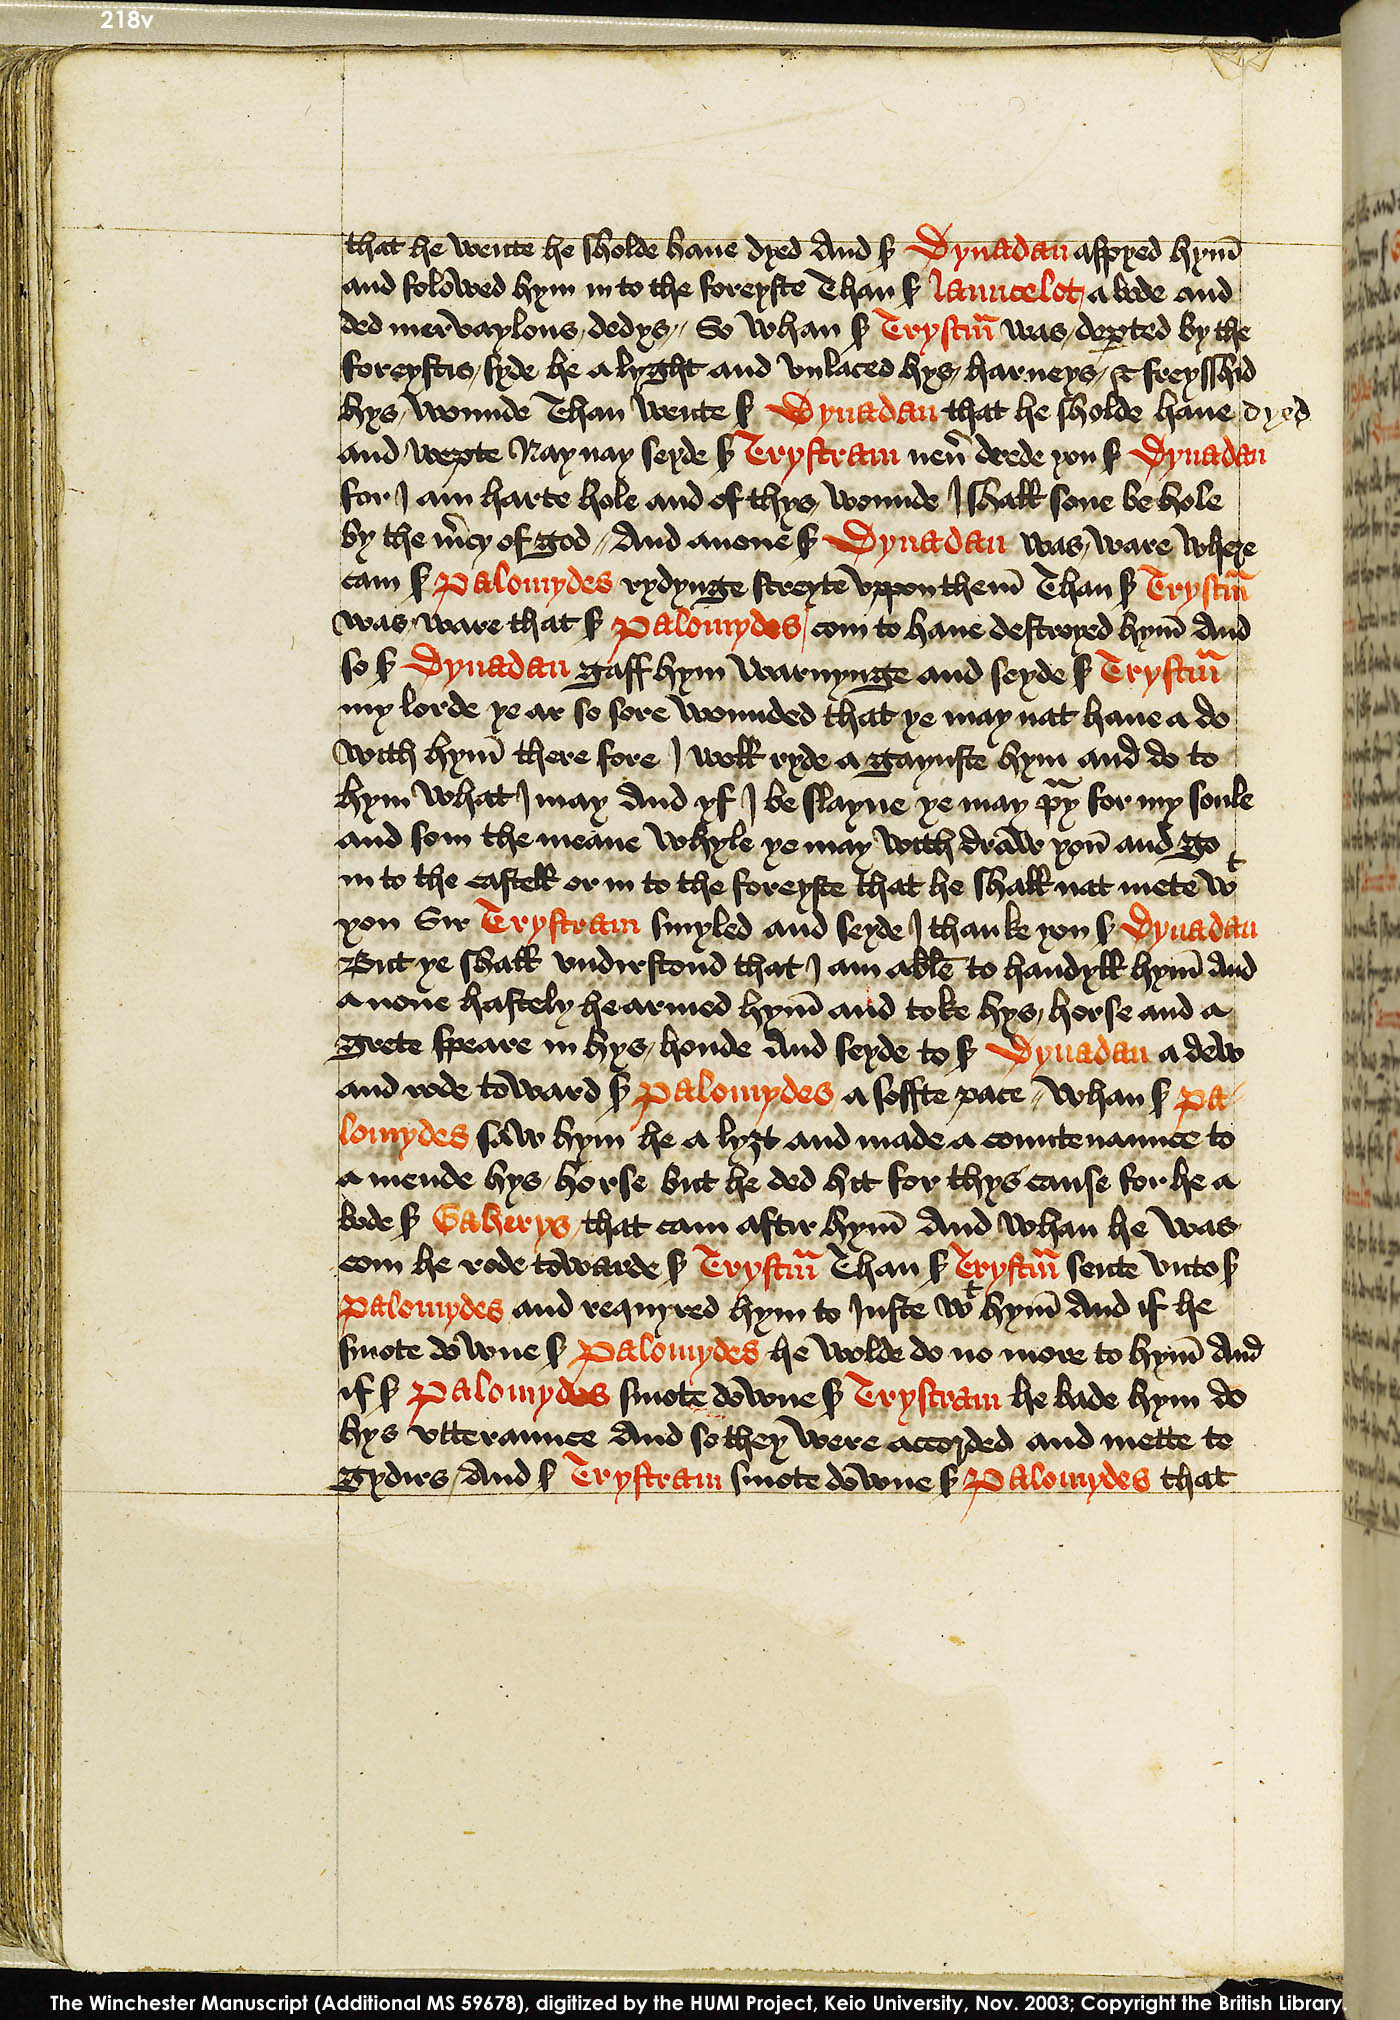 218v
that he wente he sholde haue dyed And sˀ Dynadan aspyed hym̄
and folowed hym in to the foreyste Than sˀ launcelot a bode and
ded mervaylous dedys // So whan sˀ Trystrm̄ was dep̱ted by the
foreystis syde he a lyght and vnlaced hys harneys & freysshid
hys wounde Than wente sˀ Dynadan that he sholde haue dyed
and wepte Nay nay seyde sˀ Trystram neuˀ drede you sˀ Dynadan
for I am harte hole and of thys wounde I shall sone be hole
by the mˀcy of god // And anone sˀ Dynadan was ware where
cam sˀ Palomydes rydynge streyte vppon them̄ Than sˀ Trystrm̄
was ware that sˀ Palomydes com to haue destroyed hym̄ And
so sˀ Dynadan gaff hym warnynge and seyde sˀ Trystrm̄
my lorde ye ar so sore wounded that ye may nat haue a do
with hym̄ there fore I woll ryde a gaynste hym and do to
hym what I may And yf I be slayne ye may pᵃy for my soule
and som the meane whyle ye may with draw you and go
in to the castell or in to the foreyste that he shall nat mete wᵗ
you Sir Trystram smyled and seyde I thanke you sˀ Dynadan
But ye shall vndirstond that I am able to handyll hym̄ And
a none hastely he armed hym̄ and toke hys horse and a
grete speare in hys honde And seyde to sˀ Dynadan a dew
and rode toward sˀ Palomydes a soffte pace // Whan sˀ Pa-
lomydes saw hym he a lyȝt and made a countenaunce to
a mende hys horse but he ded hit for thys cause for he a
bode sˀ Gaherys that cam aftir hym̄ And whan he was
com he rode towarde sˀ Trystrm̄ Than sˀ Trystrm̄ sente vnto sˀ
Palomydes and requyred hym to Iuste wᵗ hym̄ And if he
smote downe sˀ Palomydes he wolde do no more to hym̄ And
if sˀ Palomydes smote downe sˀ Trystram he bade hym do
hys vtteraunce And so they were accorded and mette to
gydirs And sˀ Trystram smote downe sˀ Palomydes that
The Winchester Manuscript (Additional MS 59678), digitized by the HUMI Project, Keio University, Nov. 2003; Copyright the British Library.